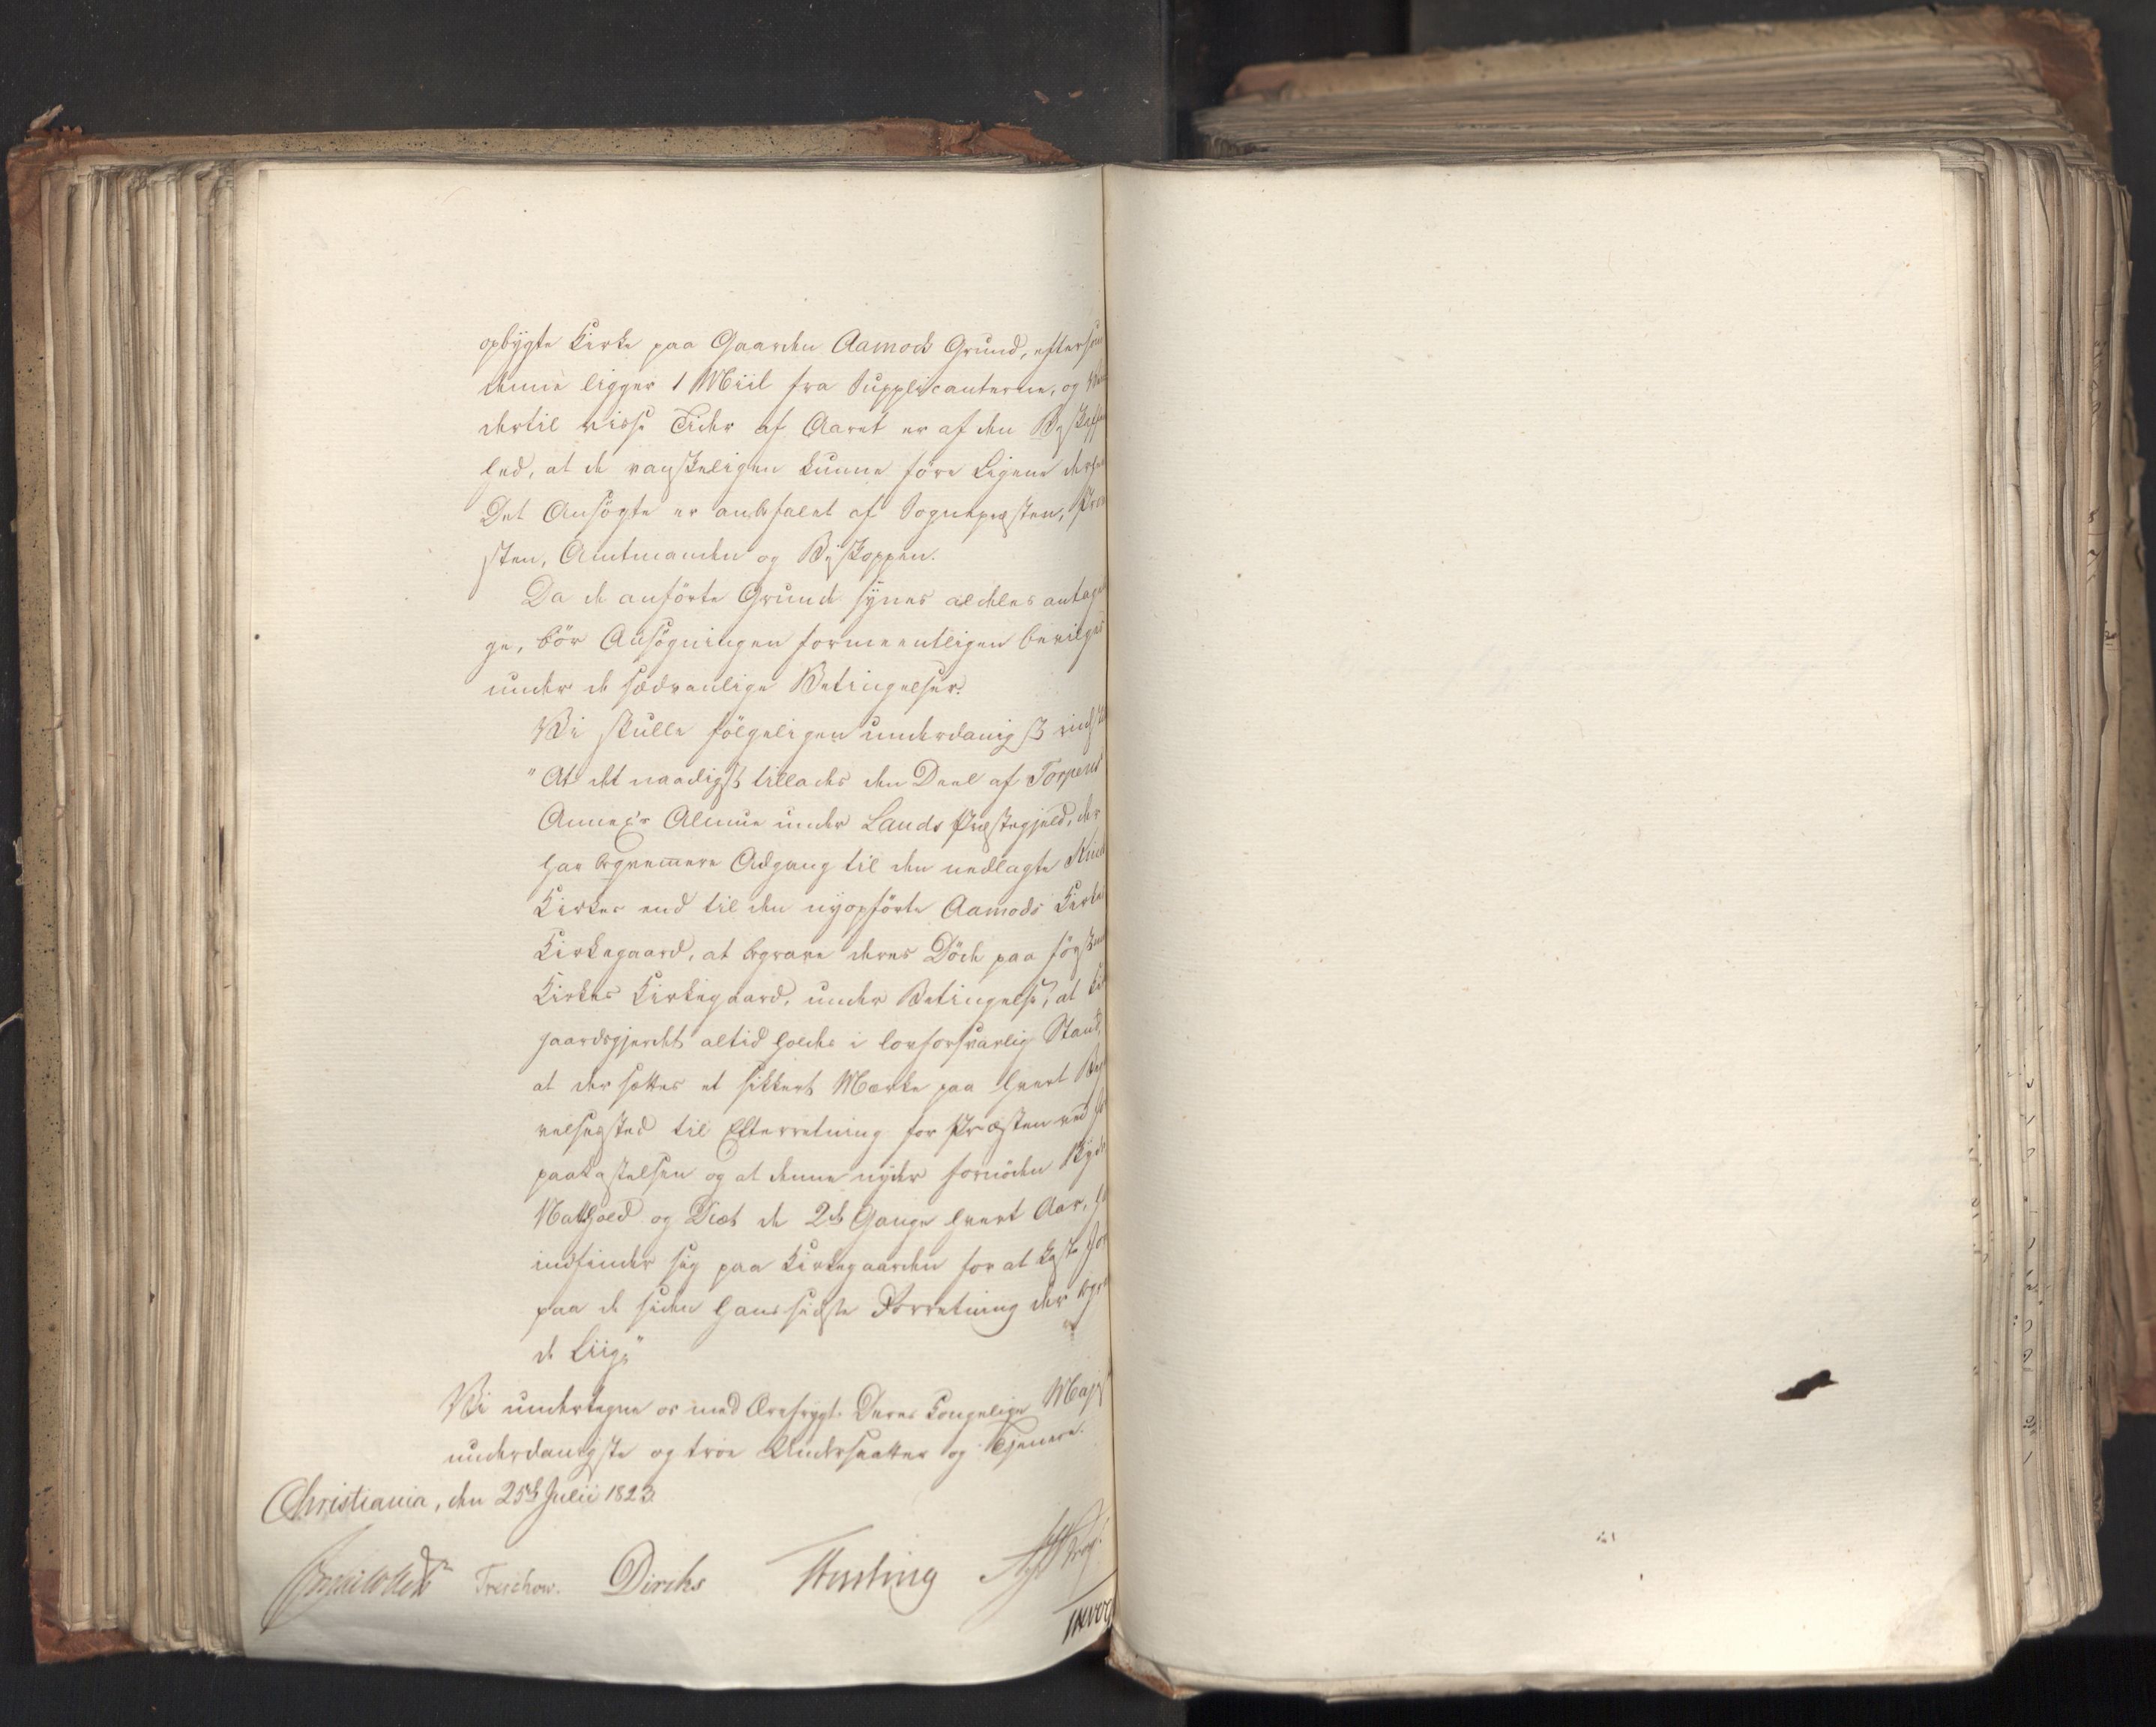 opbygte Kirke paa Gaarden Aamods Grund, efter som
denne ligger 1 Miil fra Supplicanterne, og
dertil visse Tider af Aaret er af den Beskaffen
hed, at de vanskeligen kunne føre Ligene derhen
Det Ansøgte er anbefalet af Sognepræsten, Prov
sten, Amtmanden og Biskoppen.
Da de anførte Grunde synes aldeles antage
ge, bør Ansøgningen formeentligen bevilges
under de sædvanlige Betingelser.
Vi skulle følgeligen underdanigst indstille
"At det naadigst tillades den Deel af Torpens
Annexes Almue under Lands Præstegjeld, der
har beqvemmere Adgang til den nedlagte Kinds
Kirkes end til den nyopførte Aamods Kirkes
Kirkegaard, at begrave deres Døde paa først
Kirkes Kirkegaard, under Betingelse, at Kir
gaardsgjerdet altid holdes i lovforsvarlig Stand,
at der sættes et sikkert Mærke paa hvert Begra
velsessted til Efterretning for Præsten ved Jords
paakastelsen og at denne nyder fornøden Skyds
Nattehold og Diæt de 2de Gange hvert Aar, han
indfinder sig paa Kirkegaarden for at kaste Jord
paa de siden hans sidste Forretning der begrav
de Liig."
Vi undertegne os med Ærefrygt Deres Kongelige Majest
underdanigste og troe Undersaatter og Tjenere.
Christiania, den 25de Julii 1823.
Treschow. Diriks